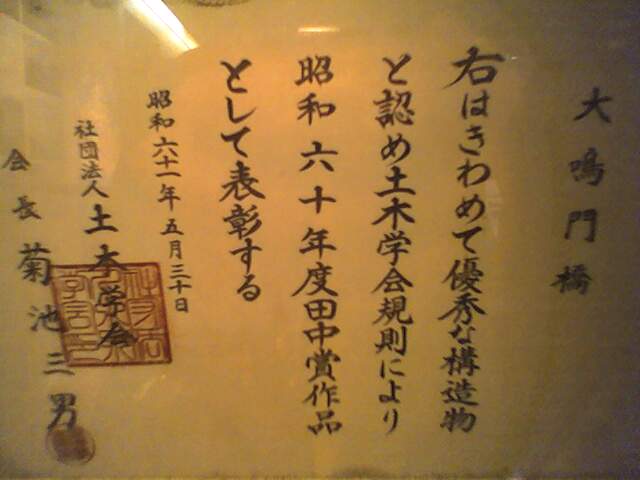 大鳴門橋
右はきわめて優秀な構造物
と認め土木学会規則により
昭和六十年度田中賞作品
として表彰する
昭和六十一年五月三十日
社団法人土木学会
会長菊池三男